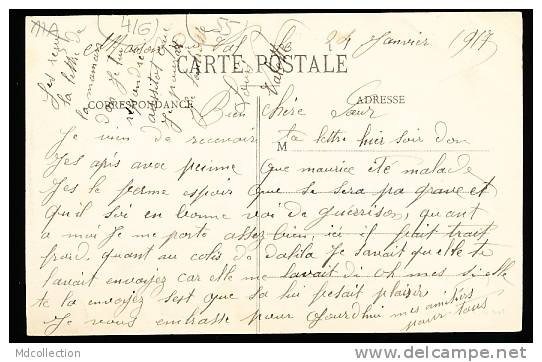 (4/6)
Maisons le 24 Janvier 1917
CARTE POSTALE
CORRESPONDANCE
ADRESSE
Bien chère Sœur
Je vien de recevoir ta lettre hier soir don
M
Jes apris avec peinne que maurice été malade
Jes le ferme espoir que se sera pa grave et
quil soi en bonne voi de guerison, quant
a moi Je me porte assez bien, ici il fait trait
froid, quant au colis de dalila Je savait qu'elle te
lavait envoyez car elle me lavait di oh mes si elle
te la envoyez sest que sa lui fesait plaisir
Je vous embrasse pour aujourdhui mes amitiés
pour tous
Jes reçu
la lettre de
la maman
Valette
Mdcollection
www.delcampe.net